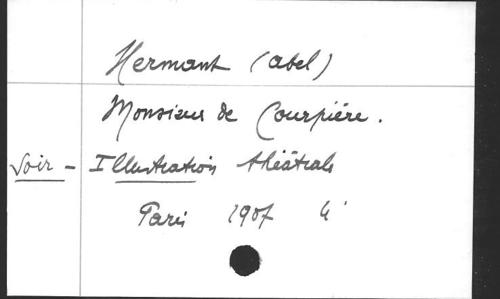 Hermant (abel)
Monsieur de Courpière.
Voir - Illustration théâtrale
Paris 1907 4°